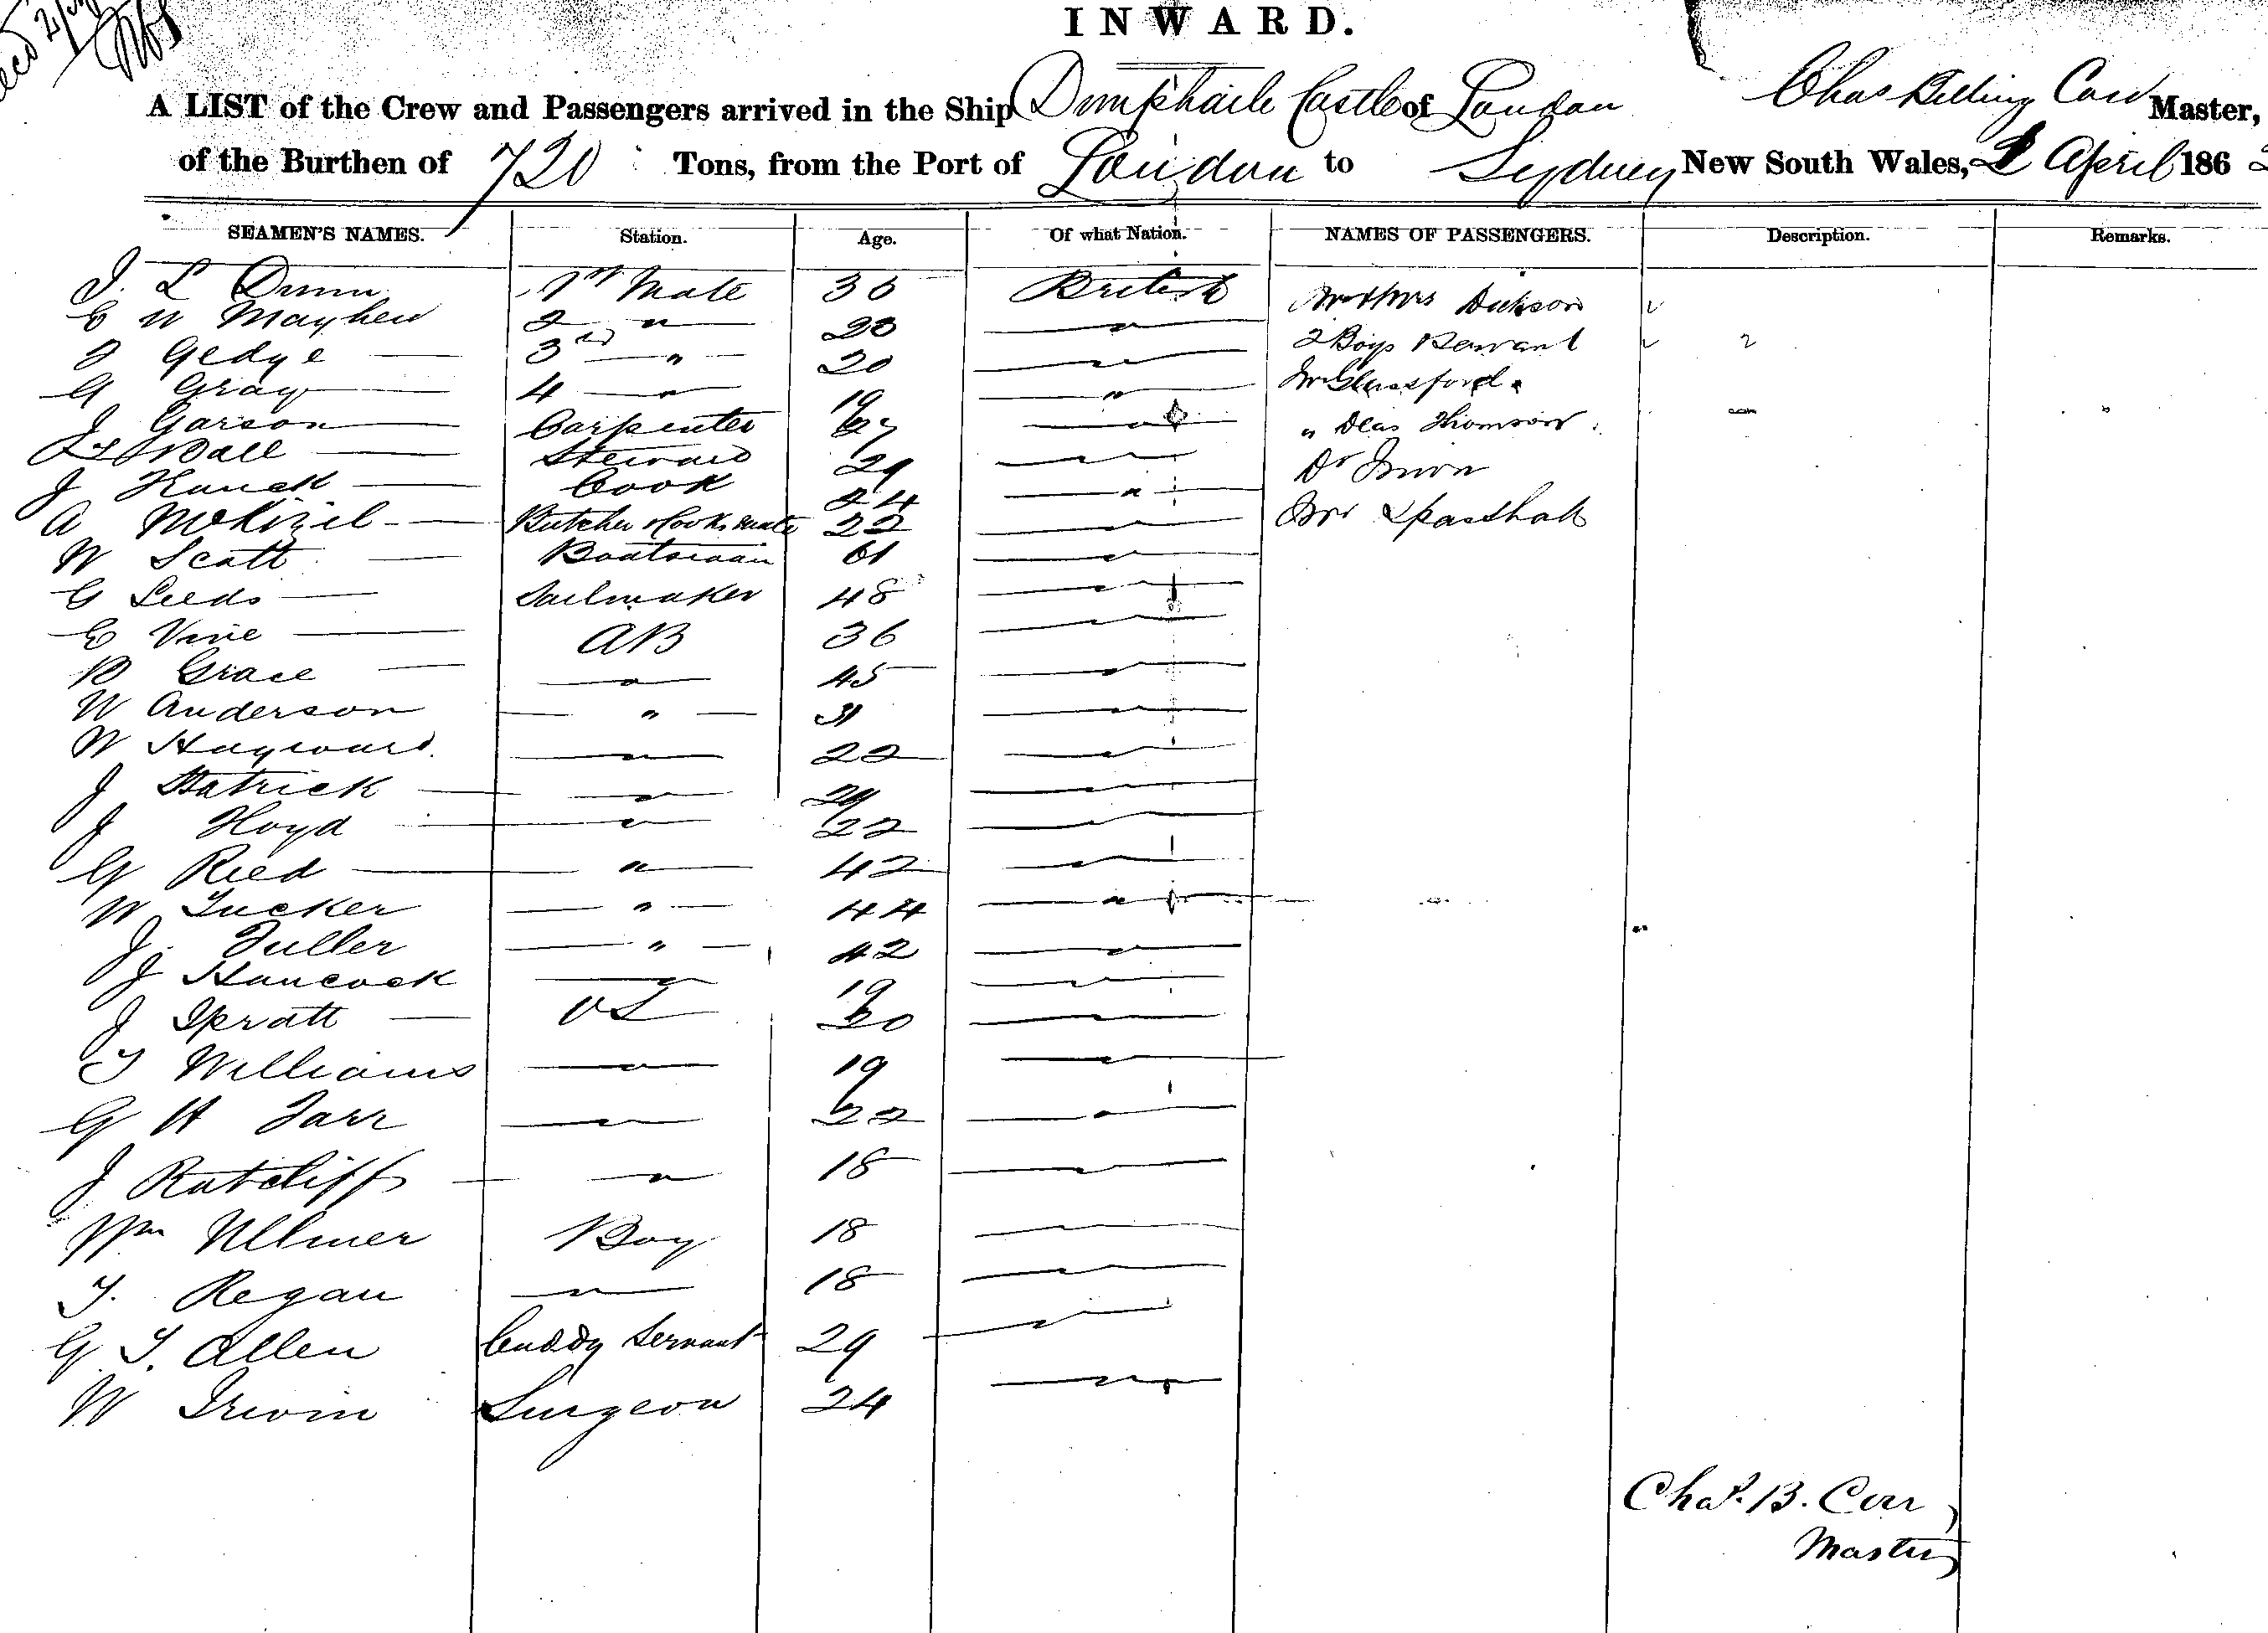 INWARD.
A LIST of the Crew and Passengers arrived in the Ship Dunphaile Castle of London Chas Billing Carr Master,
of the Burthen of 720 Tons, from the Port of London to Sydney New South Wales, 2 April 186
SEAMEN'S NAMES. Station. Age. Of what Nation. NAMES OF PASSENGERS. Description. Remarks.
J. L Dunn 1st Mate 36 British Mr & Mrs Dickson
C W Mayhew 2 " 20 " 2 Boys Servant 2
J Gedye 3rd " 20 "
G Gray 4 " 19 " Mr Glassford
J Garson Carpenter 27 " " Deas Thomson
Ball Steward 29 " Dr Irwin
J Hanck Cook 24 "
A Butcher & Cooks Mate 22 " Mrs
W Scott Boatswain 61 "
G Leeds Sailmaker 48 "
E Vine AB 36 "
R Grace " 45 "
W Anderson " 31 "
W Hayward " 22 "
J Patrick " 29 "
J Floyd " 22 "
G Reed " 42 "
W Tucker " 44 "
J. Fuller " 42 "
J Hancock " 19 "
J Spratt OS 20 "
T Williams " 19 "
G H Tarr " 22 "
J Ratcliff " 18 "
Wm Ullmer Boy 18 "
T. Regan " 18 "
G T. Allen Cuddy Servant 29 "
W Irwin Surgeon 24 "
Chas. B. Carr
Master